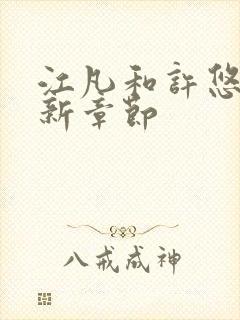 江凡和許悠
新章節
八戒成神